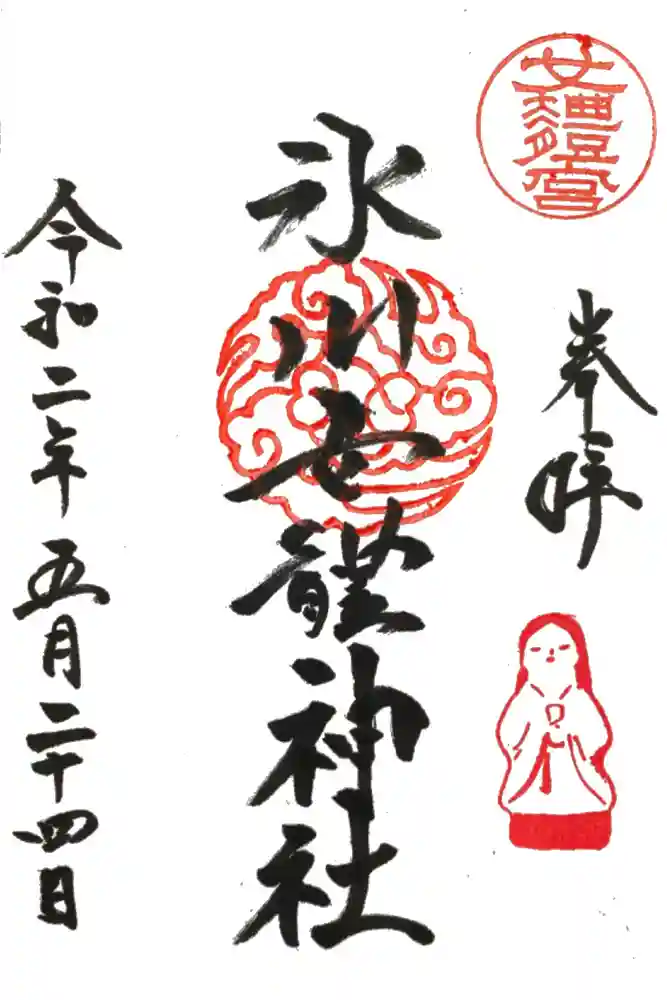 女體宮
奉拝
氷川女體神社
令和二年五月二十四日